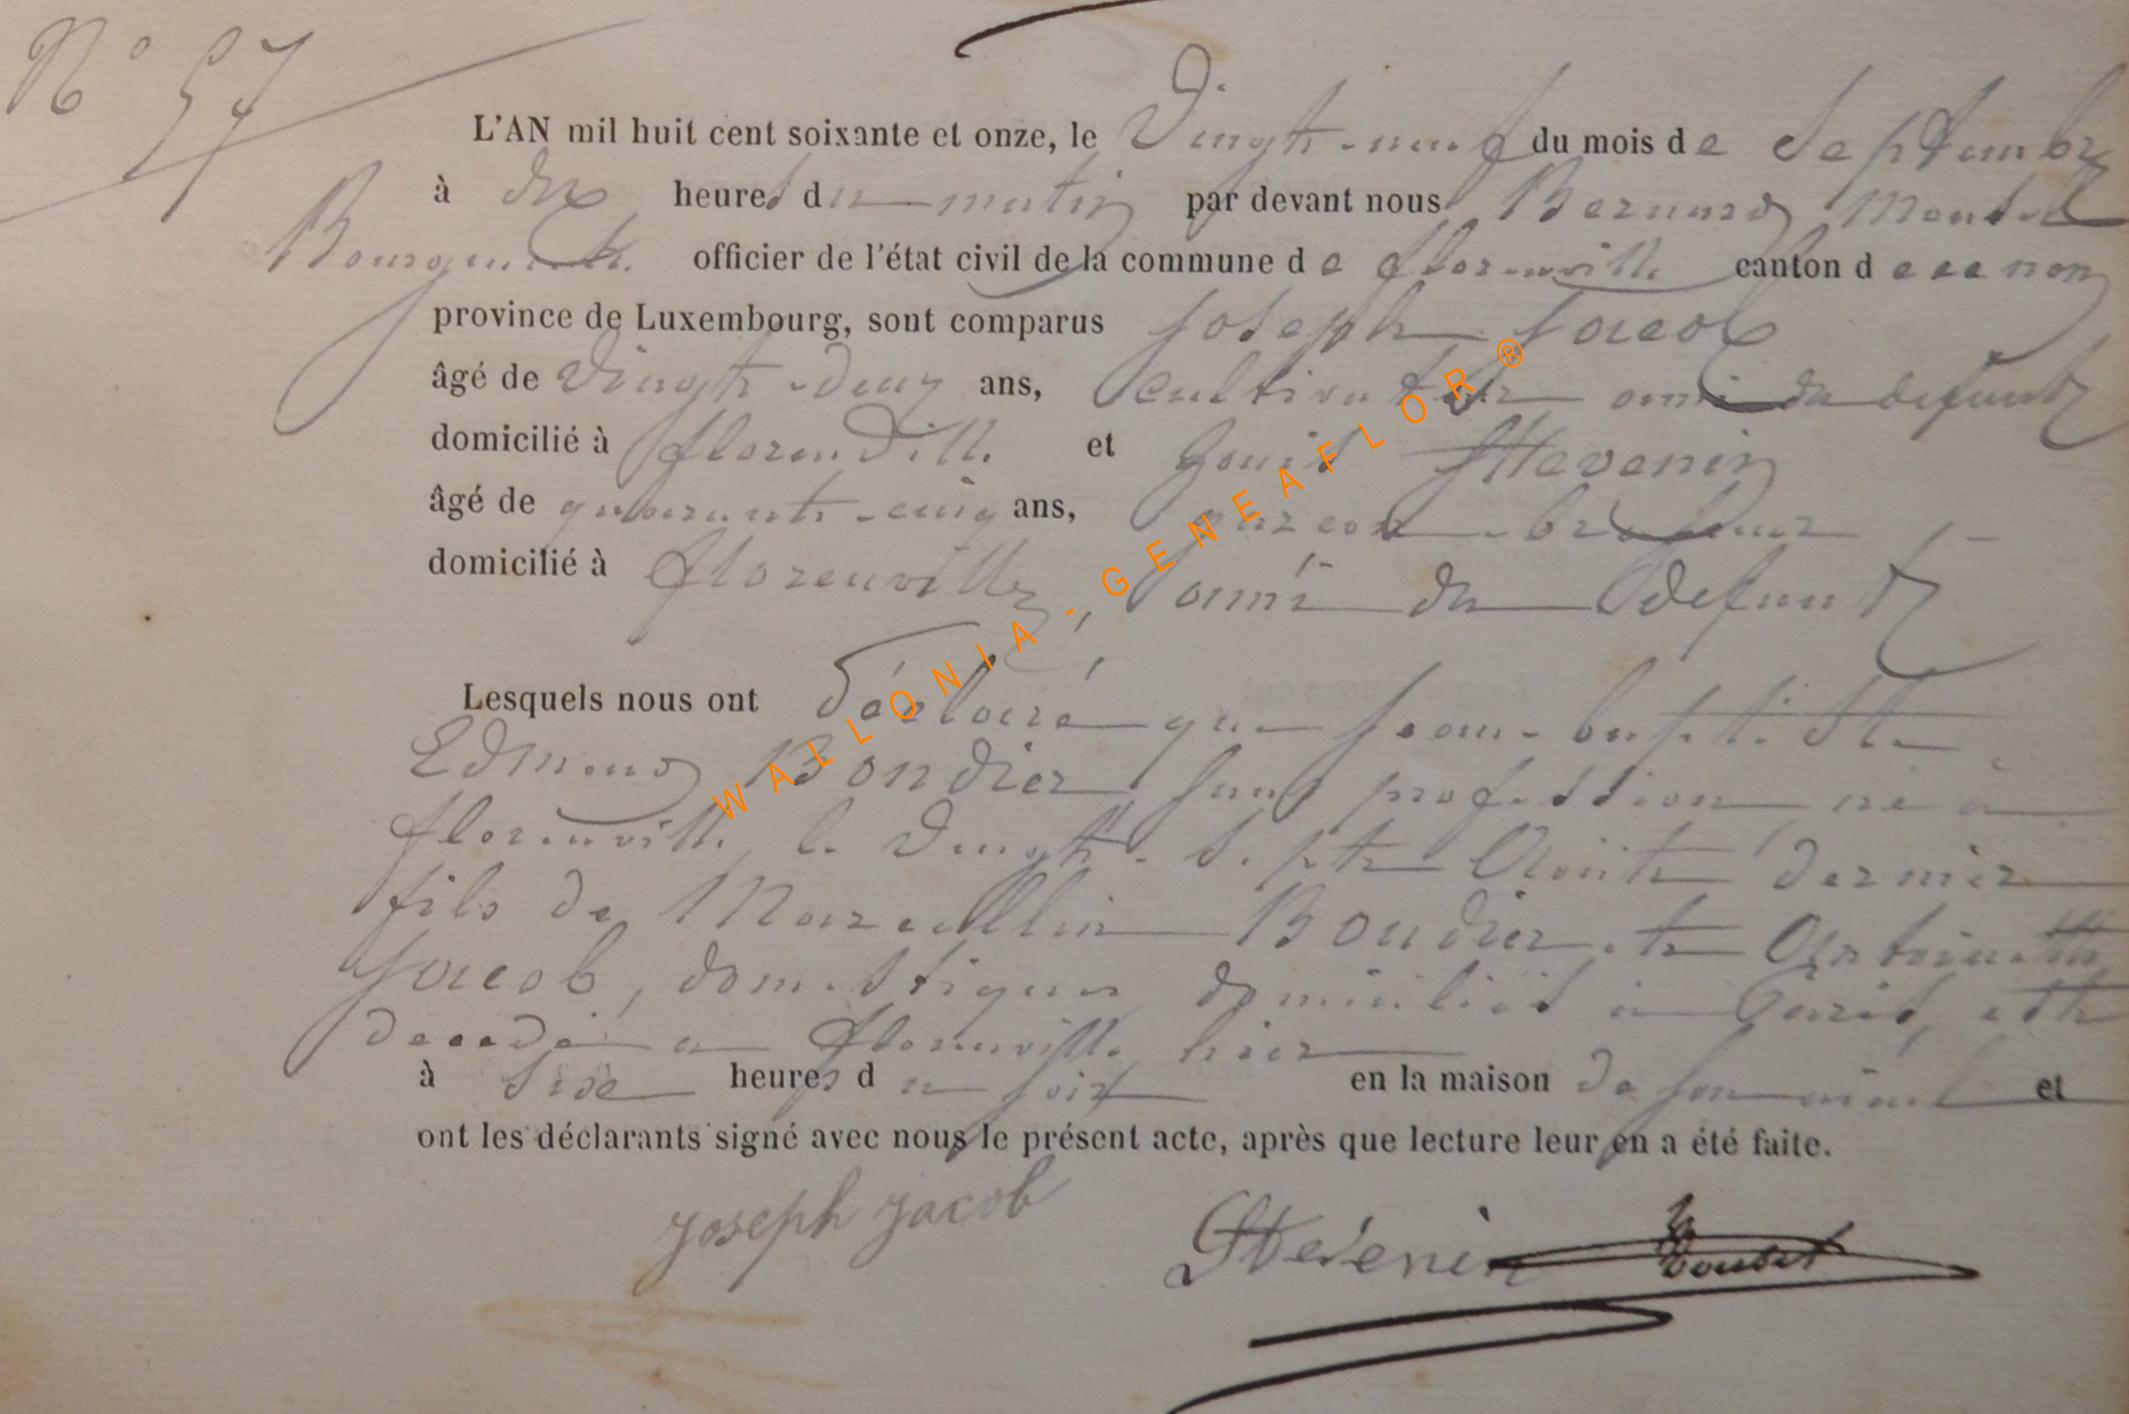 N° 57
L'AN mil huit cent soixante et onze, le Vingt-neuf du mois de Septembre
à dix heures du matin par devant nous Bernard
Bourgmestre officier de l'état civil de la commune de florenville canton de ce nom
province de Luxembourg, sont comparus Joseph Jacob
âgé de Vingt-deux ans, Cultivateur ami du defunt
domicilié à florenville et Louis Stevenin
âgé de quarante-cinq ans, garcon-brasseur
domicilié à florenville, ami du defunt
Lesquels nous ont déclaré que Jean-baptiste
Edmond Bondier sans profession né à
florenville le Vingt-sept Août dernier
fils de Marcellin Boudier et Antoinette
Jacob, domestiques domiciliés à Paris, est
decedé à florenville hier
à Six heures du soir en la maison de son et
ont les déclarants signé avec nous le présent acte, après que lecture leur en a été faite.
Joseph Jacob Stevenin
WALLONIA-GENEAFLOR®